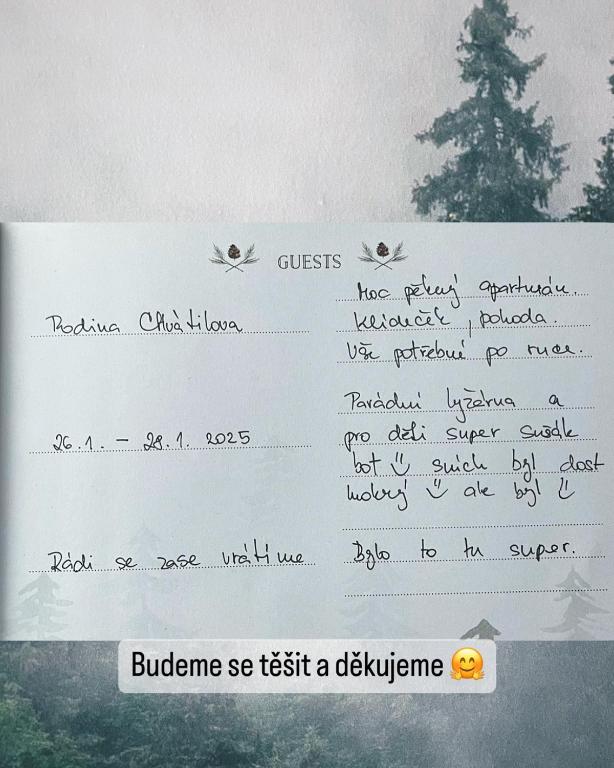 GUESTS
Rodina Chvátilova
26.1. – 28.1. 2025
Rádi se zase vrátíme
Moc pěkný apartmán.
Klideček, pohoda.
Vše potřebné po ruce.
Parádní lyžárna a
pro děti super sušák
bot ü snich byl dost
mokrý ü ale byl ü
Bylo to tu super.
Budeme se těšit a děkujeme 🤗